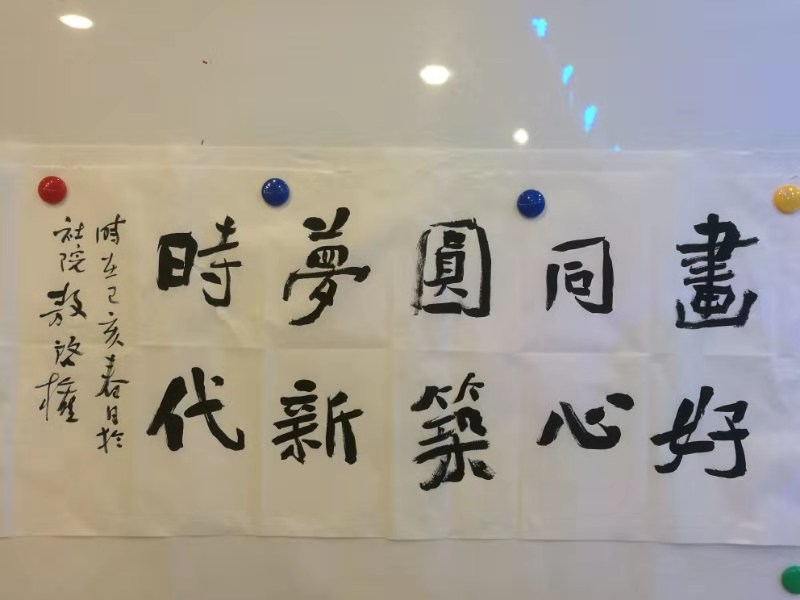 畫好
同心
圓築
夢新
時代
時在己亥春日於
社院敖啟權